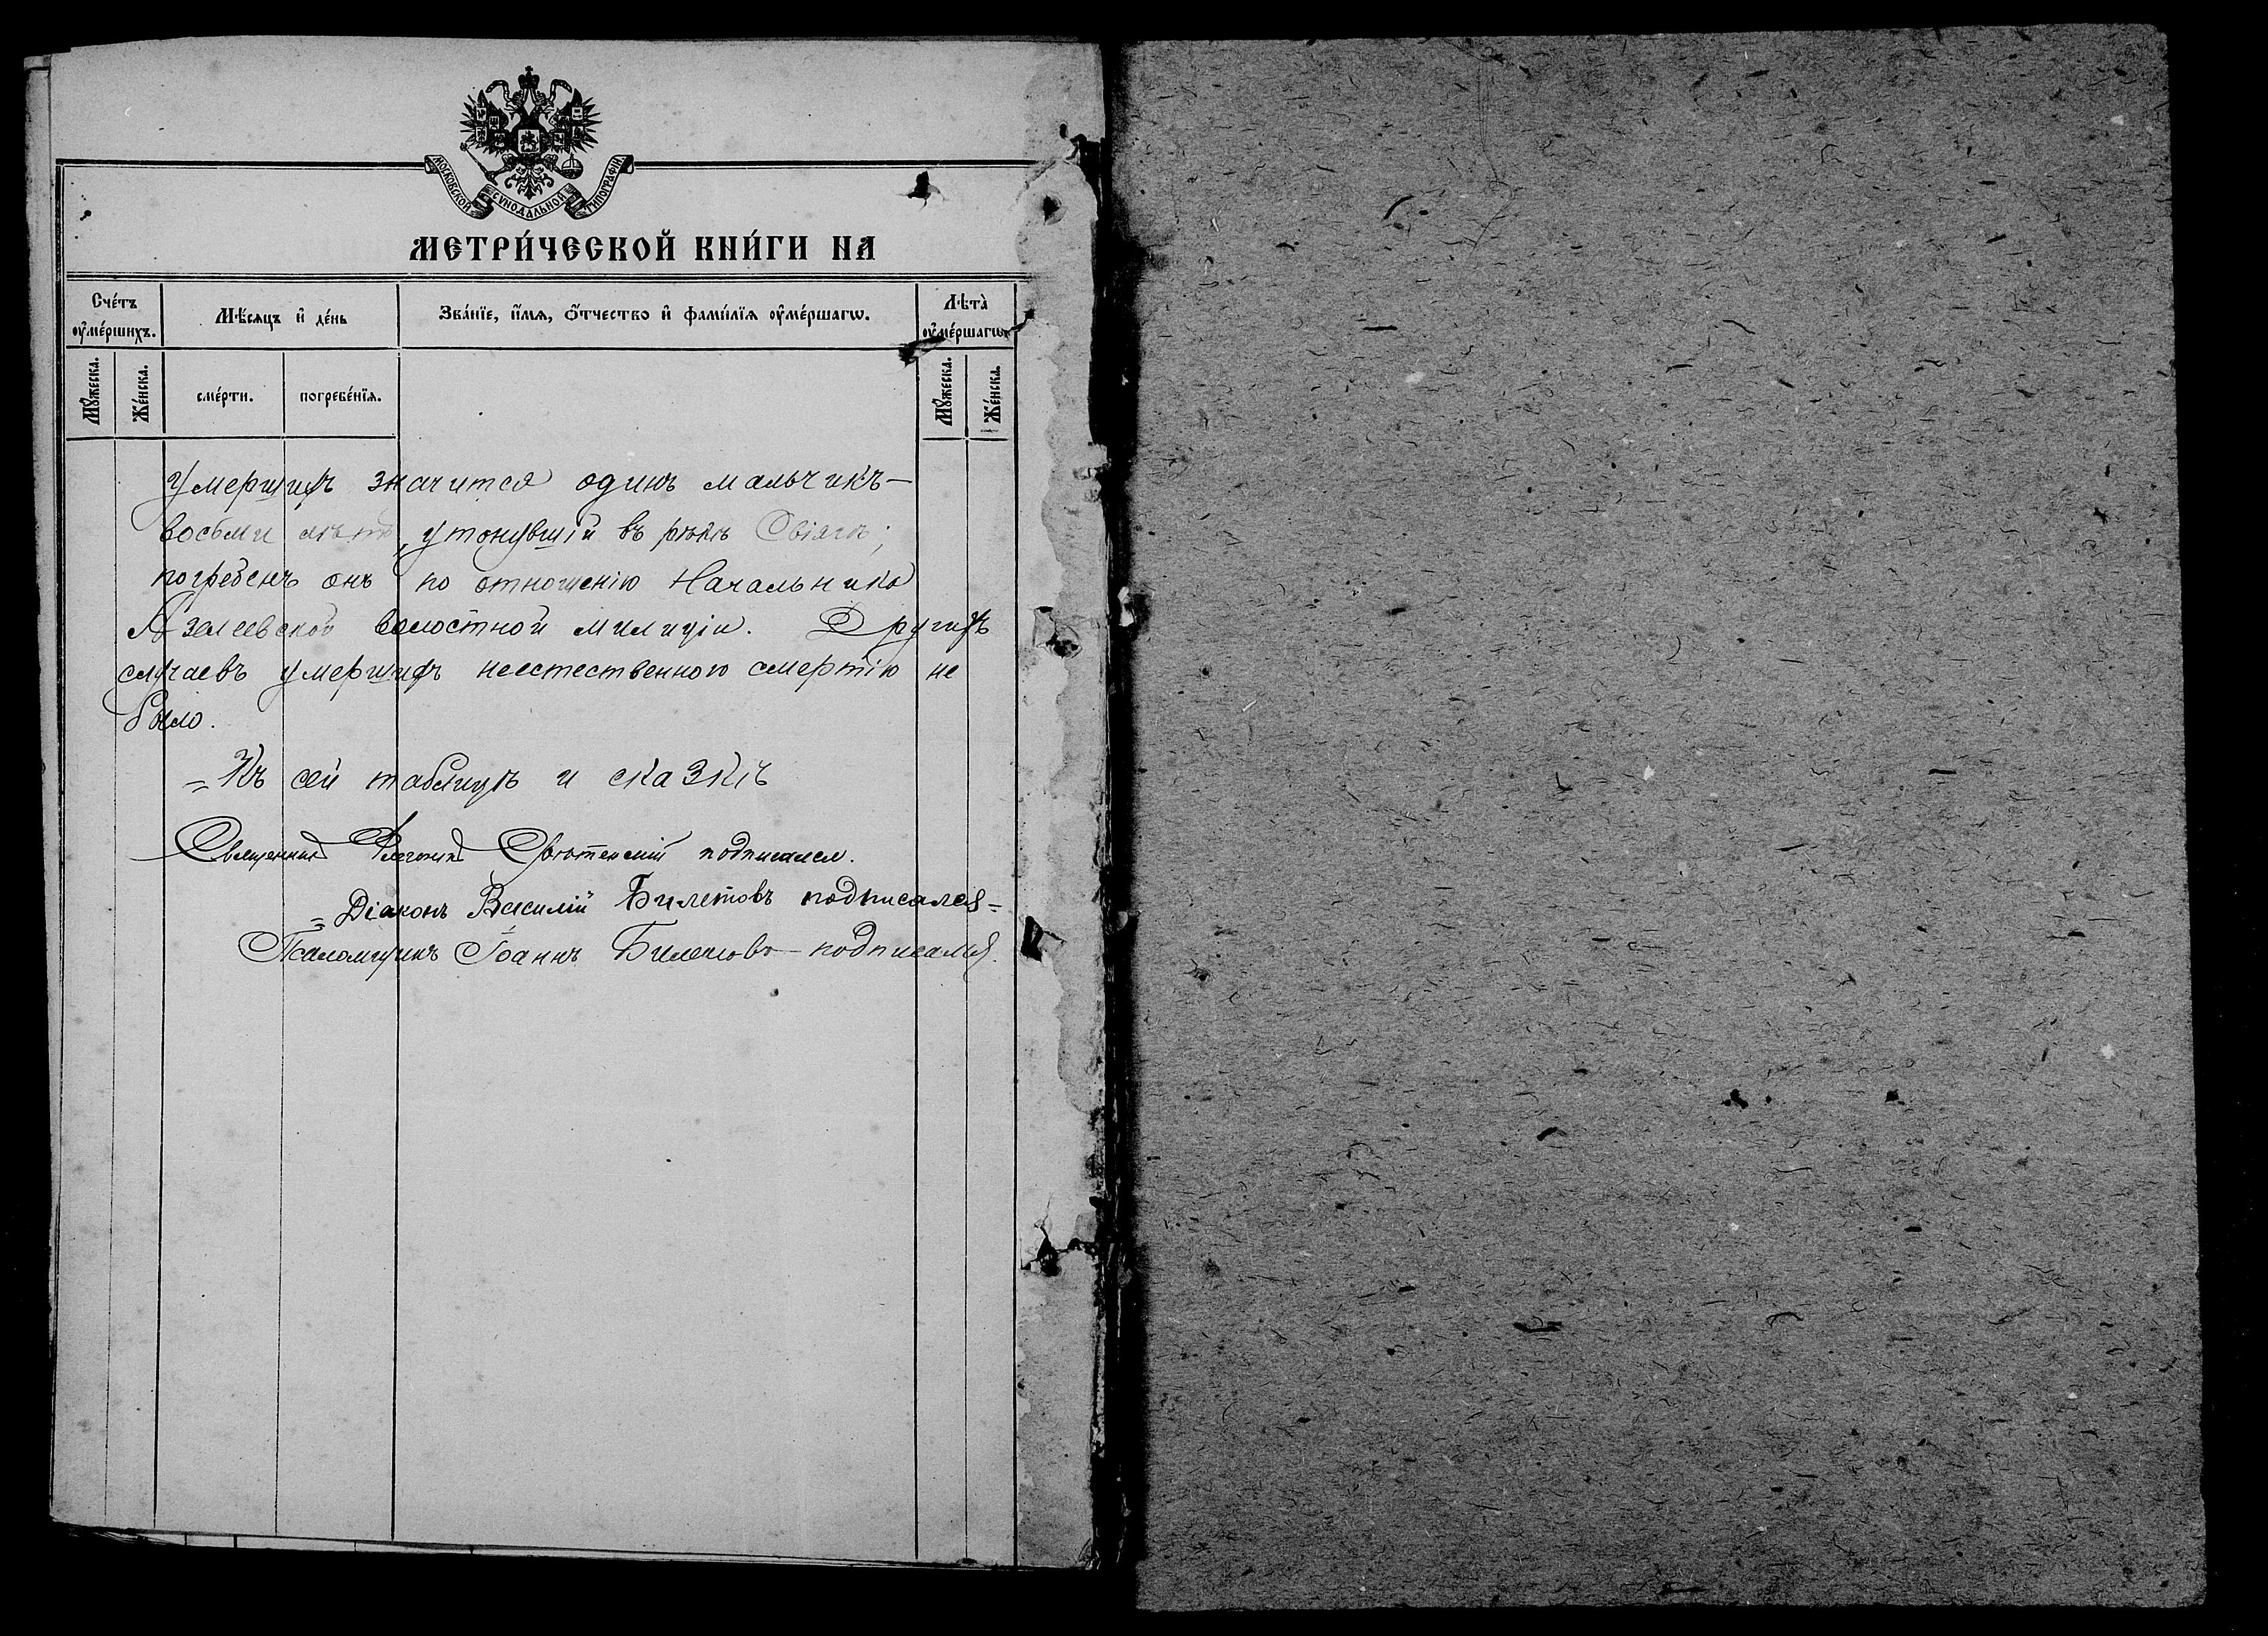 МОСКОВСКОЙ СѴНОДАЛЬНОЙ ТИПОГРАФІИ
МЕТРИ́ЧЕСКОЙ КНИ́ГИ НА
Сче́тъ ᲂу҆ме́ршихъ.
Мѣ́сяцъ и҆ де́нь
Зва́нїе, и҆́мя, ѻ҆́тчество и҆ фами́лїя ᲂу҆ме́ршагѡ.
Лѣта̀ ᲂу҆ме́ршагѡ.
Мꙋ́жеска.
Же́нска.
сме́рти.
погребе́нїя.
Мꙋ́жеска.
Же́нска.
умершихъ значится одинъ мальчикъ—
восьми лѣтъ, утонувшій въ рѣкѣ Свіягѣ;
погребенъ онъ по отношенію Начальника
Азелеевской волостной милиціи. Другихъ
случаевъ умершихъ неестественною смертію не
было.
= Къ сей таблицѣ и сказкѣ
Священникъ подписался.
= Діаконъ Василій Билетовъ подписался =
Псаломщикъ Іоаннъ Билетовъ подписался.